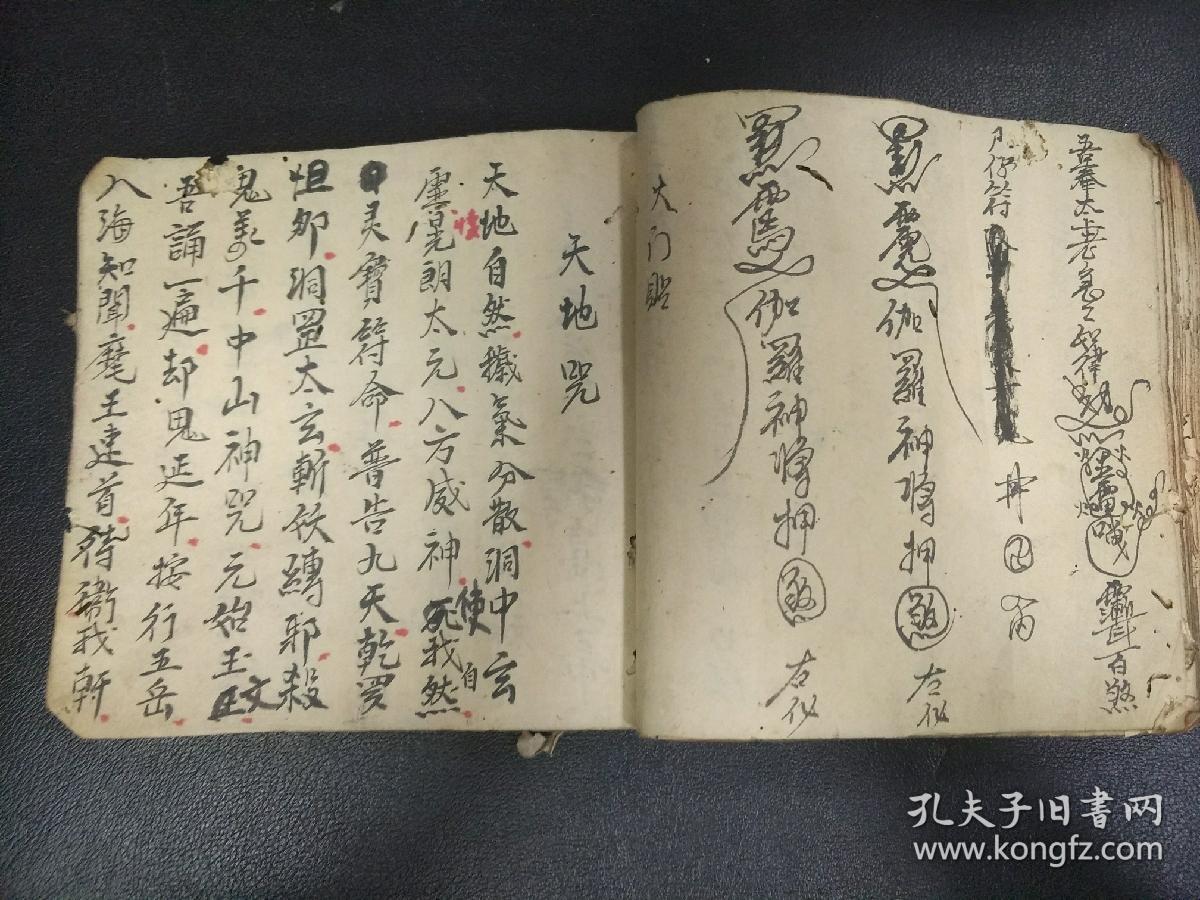 吾奉太上老君急急如律
百煞
符
伽羅神将押 煞 左
伽羅神将押 煞 右
大门貼
天地咒
天地自然穢氣分散洞中玄
虛晃朗太元八方威神使我自然
灵寶符命普告九天乾罗
怛那洞罡太玄斬妖縛邪殺
鬼萬千中山神咒元始玉文
吾誦一遍却鬼延年按行五岳
八海知聞魔王速首侍衛我軒
孔夫子旧书网
www.kongfz.com